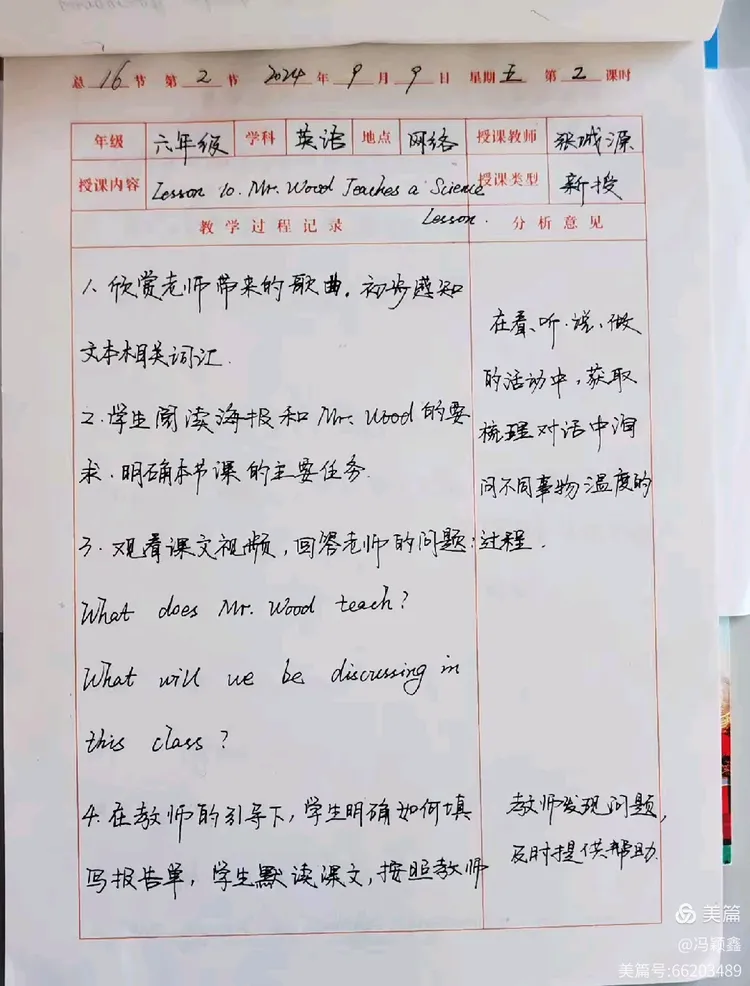 总 16 节 第 2 节 2024 年 9 月 9 日 星期 五 第 2 课时
年级 六年级 学科 英语 地点 网络 授课教师 张城源
授课内容 Lesson 10. Mr. Wood Teaches a Science Lesson. 授课类型 新授
教学过程记录 分析意见
1、欣赏老师带来的歌曲，初步感知
文本相关词汇.
2、学生阅读海报和Mr. Wood的要
求，明确本节课的主要任务.
3、观看课文视频，回答老师的问题：
What does Mr. Wood teach?
What will we be discussing in
this class?
4、在教师的引导下，学生明确如何填
写报告单，学生默读课文，按照教师
在看、听、说、做
的活动中，获取
梳理对话中询
问不同事物温度的
过程.
教师发现问题，
及时提供帮助.
美篇
@冯颖鑫
美篇号:66203489